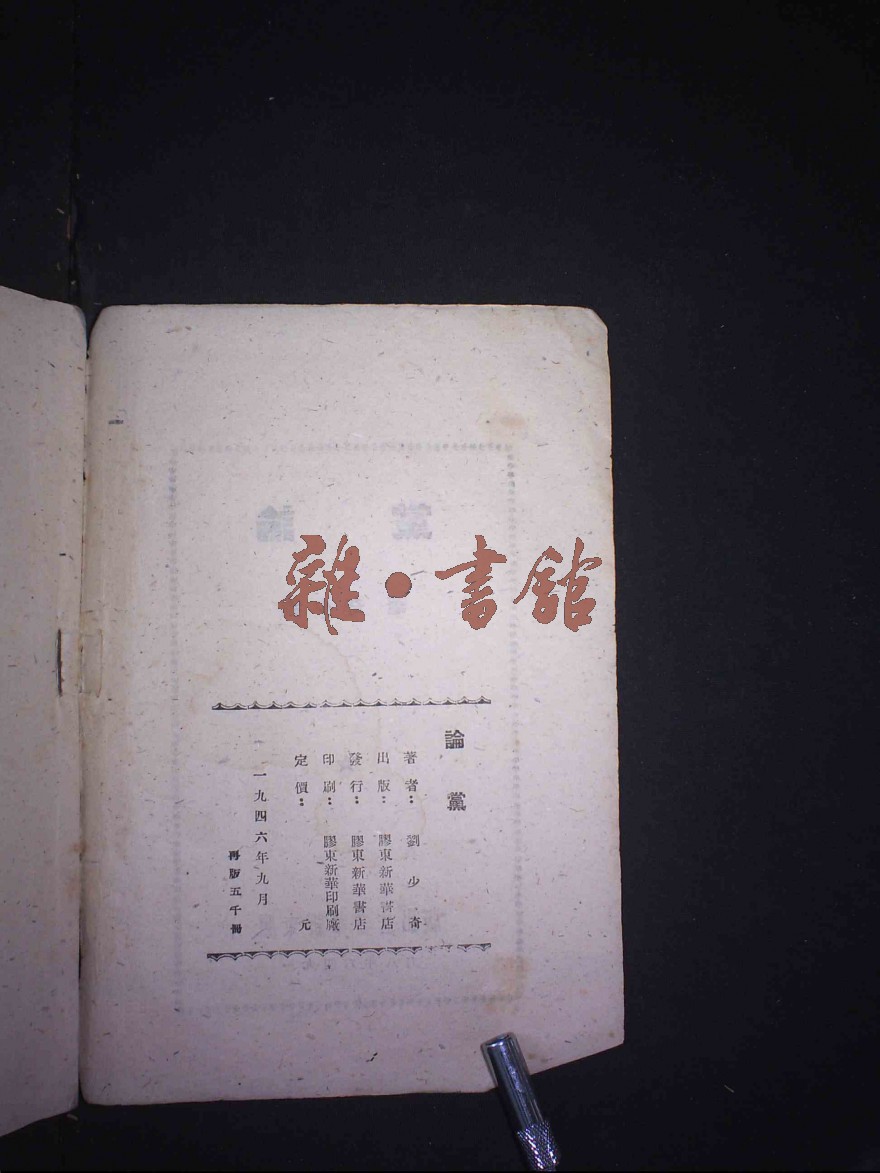 雜・書館
論黨
著者：劉少奇
出版：膠東新華書店
發行：膠東新華書店
印刷：膠東新華印刷廠
定價：元
一九四六年九月
再版五千冊